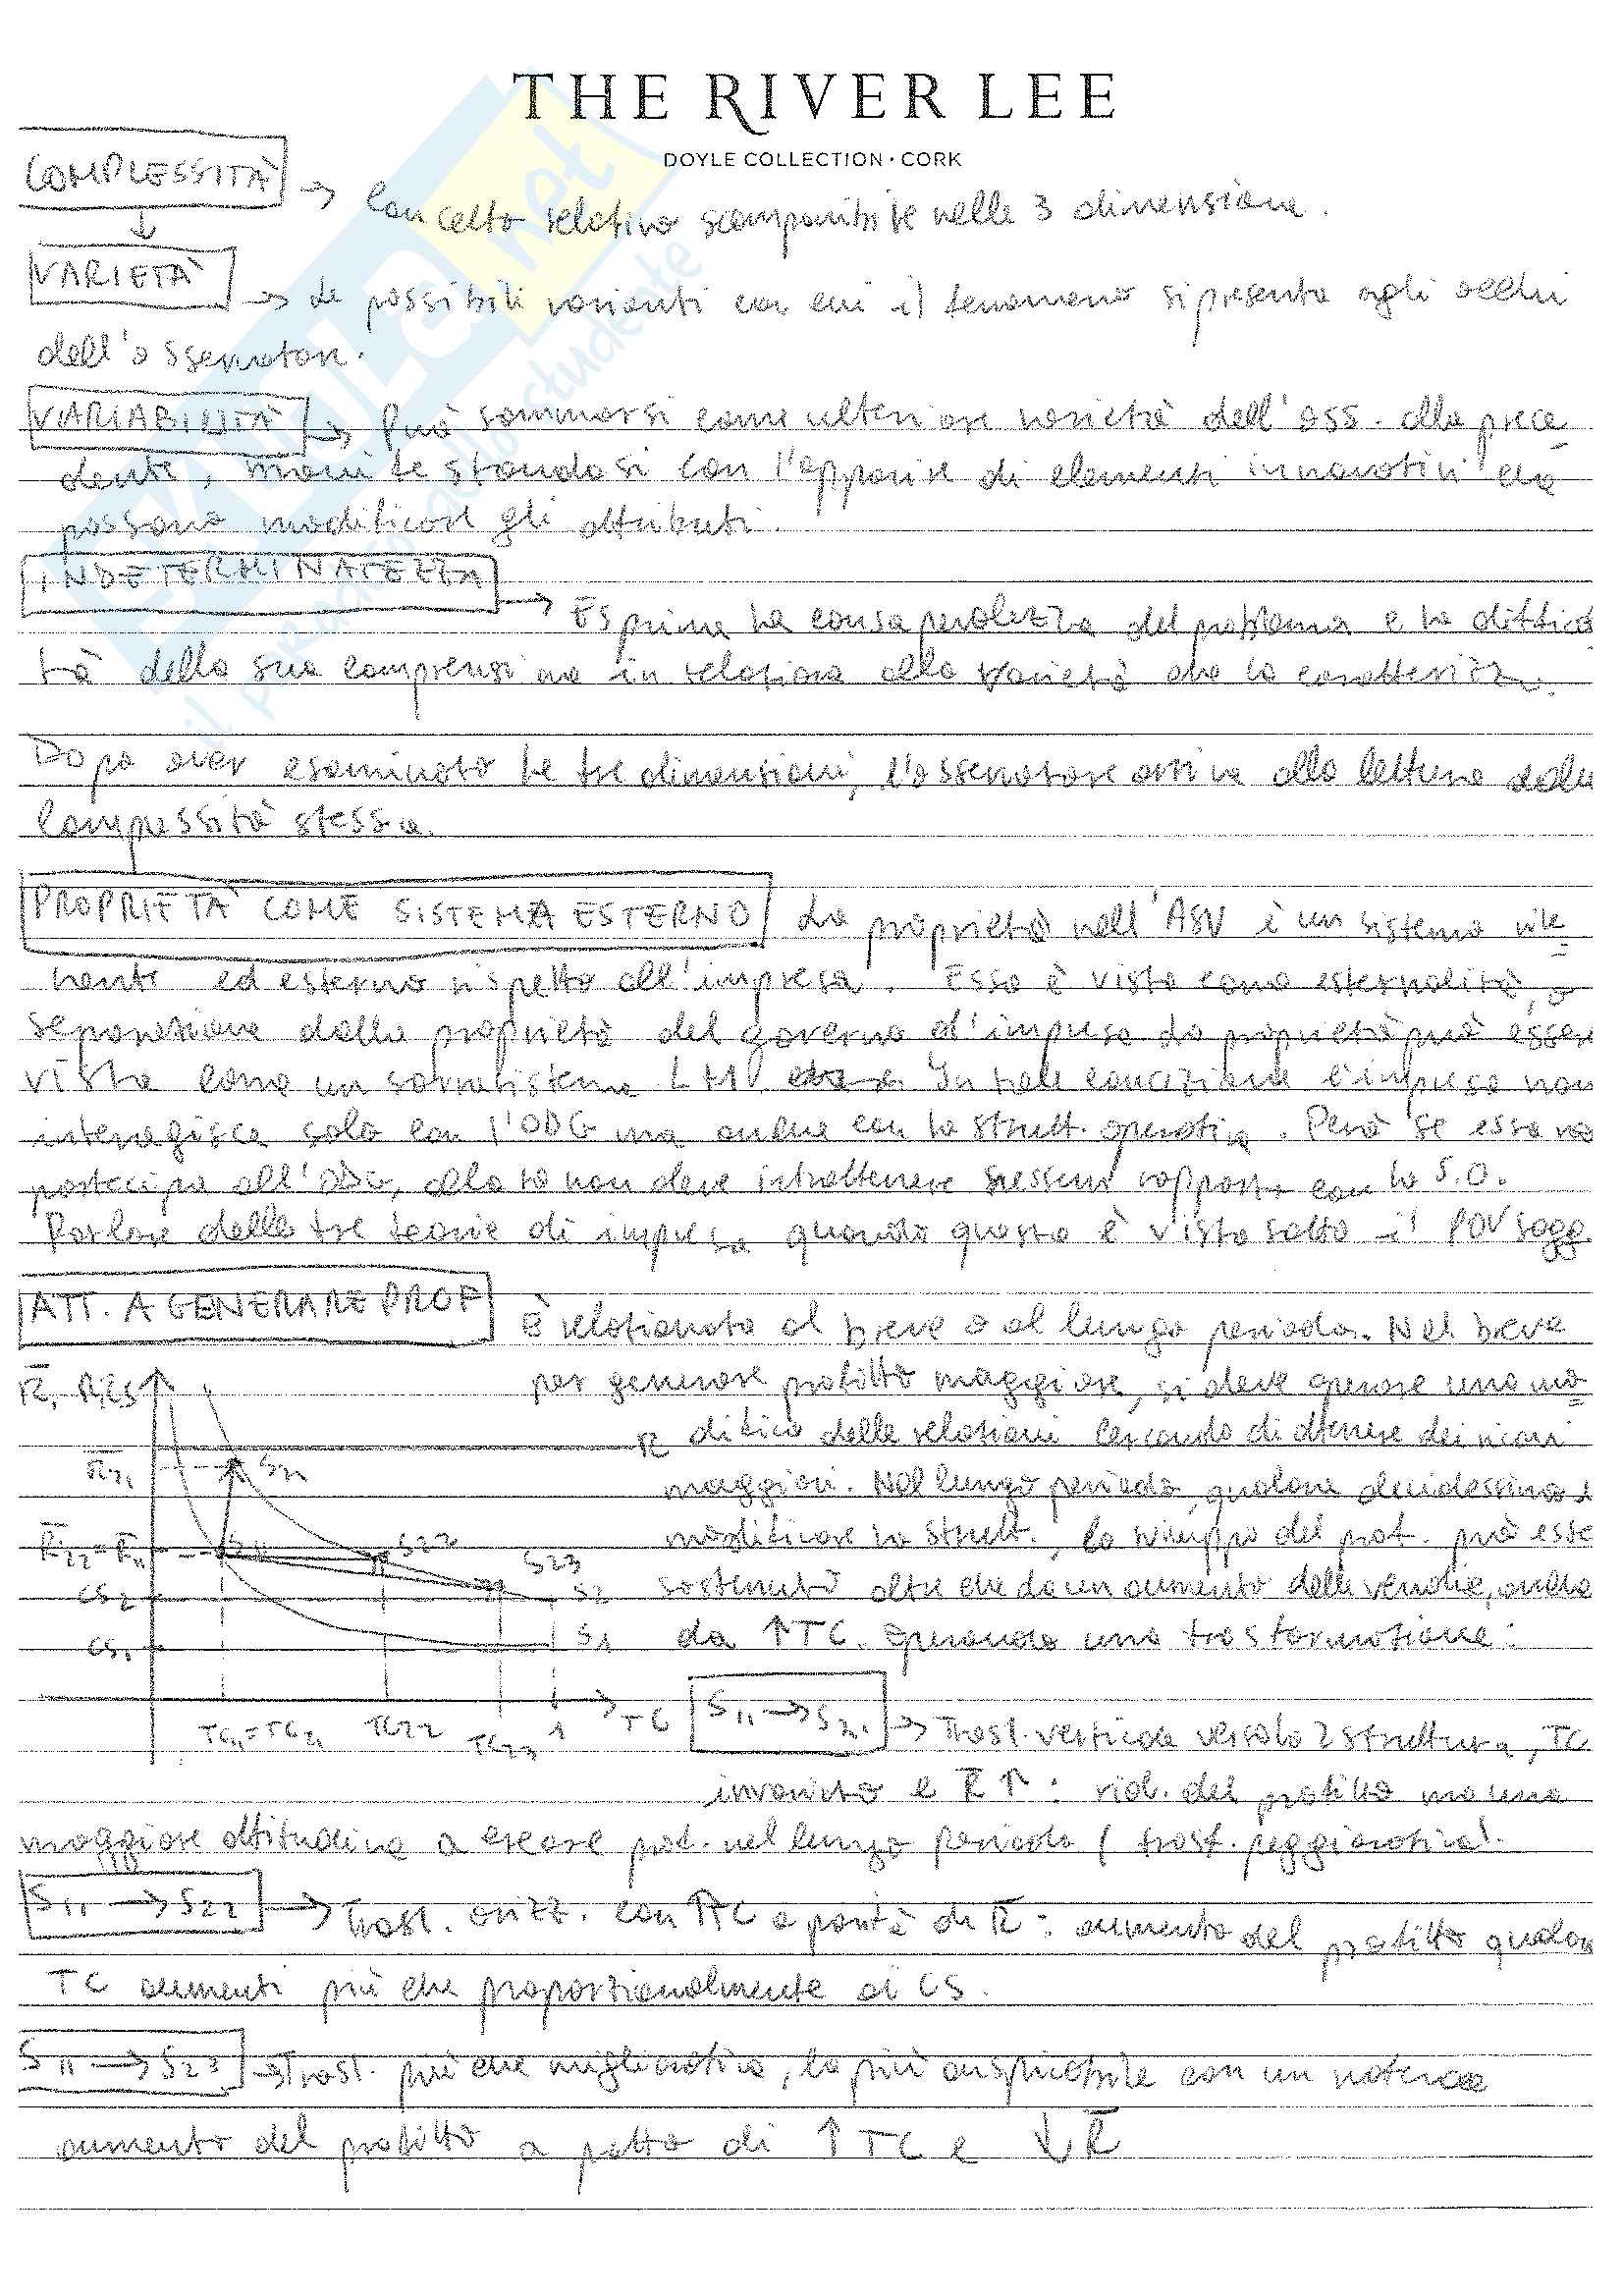 THE RIVER LEE
DOYLE COLLECTION · CORK
COMPLESSITÀ → Concetto relativo scomponibile nelle 3 dimensione.
↓
VARIETÀ → Le possibili varianti con cui il fenomeno si presenta agli occhi
dell'osservatore.
VARIABILITÀ → Può sommarsi come ulteriore varietà dell'oss. alla prece
dente, manifestandosi con l'apparire di elementi innovativi che
possono modificare gli attributi.
INDETERMINATEZZA → Esprime la consapevolezza del problema e la difficol
tà della sua comprensione in relazione alla varietà che la caratterizza.
Dopo aver esaminato le tre dimensioni, l'osservatore arriva alla lettura della
complessità stessa.
PROPRIETÀ COME SISTEMA ESTERNO La proprietà nell'ASV è un sistema rile
nante ed esterno rispetto all'impresa. Essa è vista come esternalità, o
separazione dalla proprietà del governo d'impresa La proprietà può essere
vista come un sovrasistema In tale concezione l'impresa non
interagisce solo con l'ODG ma anche con la strutt. operativa. Però se essa no
partecipa all'ODG, allora non deve intrattenere nessun rapporto con la S.O.
Parlare delle tre teorie di impresa quando questa è vista sotto il POV sogg.
ATT. A GENERARE PROF È relazionata al breve o al lungo periodo. Nel breve
per generare profitto maggiore, si deve operare una mo
difica delle relazioni cercando di ottenere dei ricavi
maggiori. Nel lungo periodo, qualora decidessimo di
modificare la strutt., lo sviluppo del prof. può esse
sostenuto oltre che da un aumento delle vendite, anche
da ↑TC. Operando una trasformazione:
R̄, R, CS
R̄
R̄₂₁ S₂₁
R̄₂₂ = R̄₁₁ S₁₁ S₂₂ S₂₃
CS₂ S₂
CS₁ S₁
TC₁₁=TC₂₁ TC₂₂ TC₂₃ 1 TC
S₁₁ → S₂₁ → Trasf. verticale verso la 2 struttura, TC
invariato e R̄ ↑: rid. del profitto ma una
maggiore attitudine a creare prof. nel lungo periodo (trasf. peggiorativa).
S₁₁ → S₂₂ → Trasf. orizz. con ↑TC a parità di R̄: aumento del profitto qualora
TC aumenti più che proporzionalmente ai CS.
S₁₁ → S₂₃ → Trasf. più che migliorativa, la più auspicabile con un notevole
aumento del profitto a patto di ↑ TC e ↓ R̄